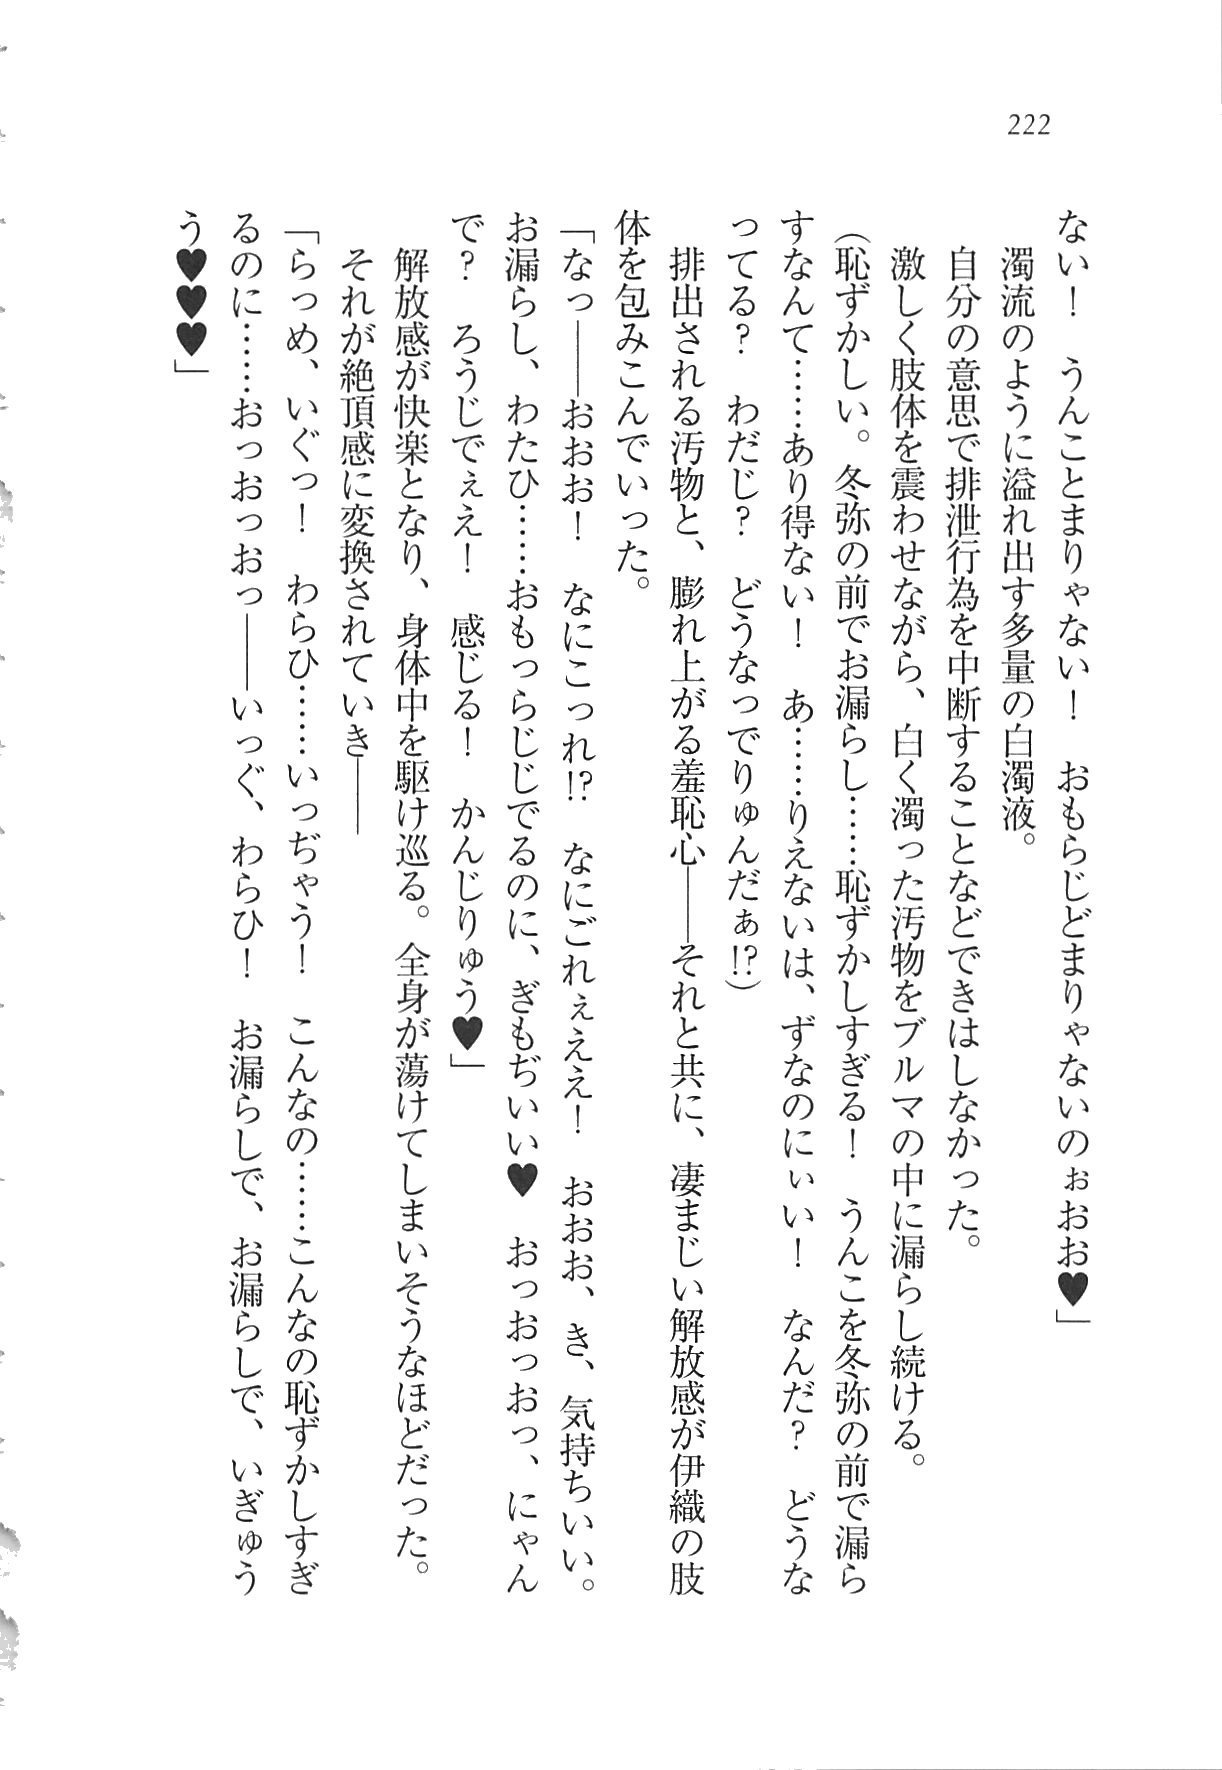 222
ない！　うんことまりゃない！　おもらじどまりゃないのぉおお♥」
　濁流のように溢れ出す多量の白濁液。
　自分の意思で排泄行為を中断することなどできはしなかった。
　激しく肢体を震わせながら、白く濁った汚物をブルマの中に漏らし続ける。
（恥ずかしい。冬弥の前でお漏らし……恥ずかしすぎる！　うんこを冬弥の前で漏ら
すなんて……あり得ない！　あ……りえないは、ずなのにぃい！　なんだ？　どうな
ってる？　わだじ？　どうなっでりゅんだぁ!?）
　排出される汚物と、膨れ上がる羞恥心――それと共に、凄まじい解放感が伊織の肢
体を包みこんでいった。
「なっ――おおお！　なにこっれ!?　なにごれぇええ！　おおお、き、気持ちいい。
お漏らし、わたひ……おもっらじじでるのに、ぎもぢいい♥　おっおっおっ、にゃん
で？　ろうじでぇえ！　感じる！　かんじりゅう♥」
　解放感が快楽となり、身体中を駆け巡る。全身が蕩けてしまいそうなほどだった。
　それが絶頂感に変換されていき――
「らっめ、いぐっ！　わらひ……いっぢゃう！　こんなの……こんなの恥ずかしすぎ
るのに……おっおっおっ――いっぐ、わらひ！　お漏らしで、お漏らしで、いぎゅう
う♥♥♥」